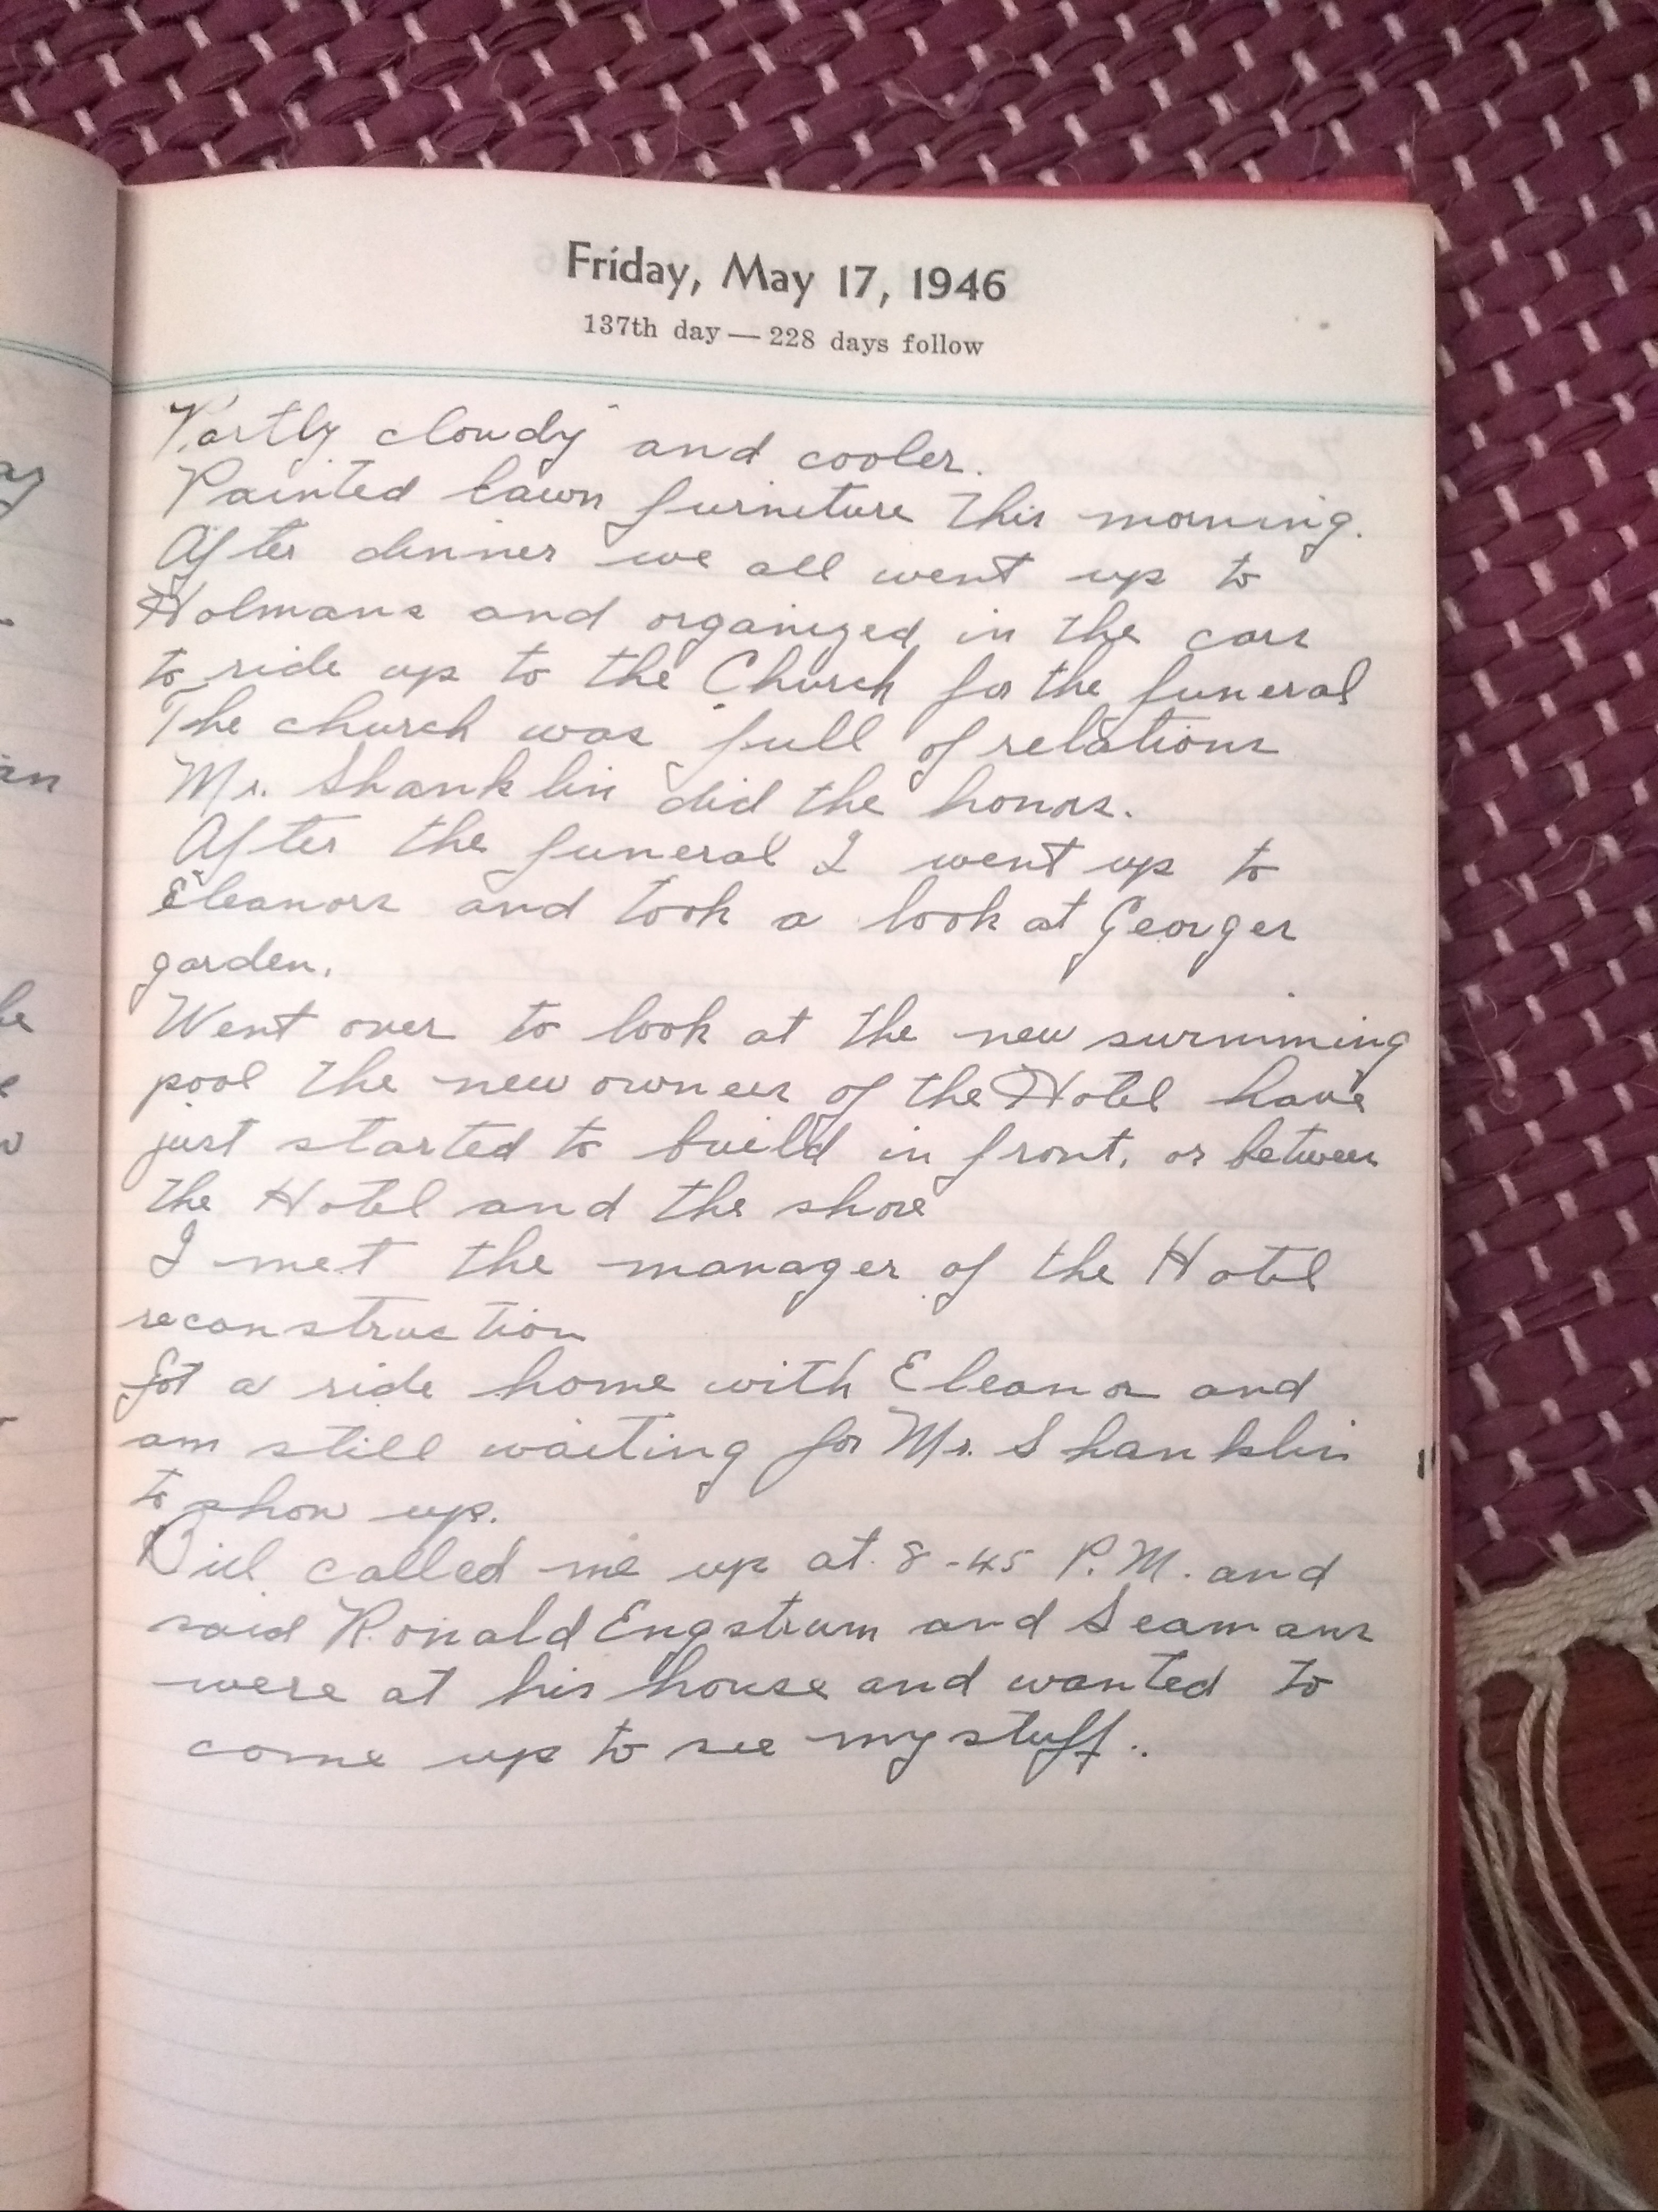 Friday, May 17, 1946
137th day — 228 days follow
Partly cloudy and cooler.
Painted lawn furniture this morning.
After dinner we all went up to
Holmans and organized in the cars
to ride up to the Church for the funeral
The church was full of relations
Mr. Shanklin did the honors.
After the funeral I went up to
Eleanors and took a look at Georges
garden.
Went over to look at the new swimming
pool the new owners of the Hotel have
just started to build in front, or between
the Hotel and the shore
I met the manager of the Hotel
reconstruction
Got a ride home with Eleanor and
am still waiting for Mr. Shanklin
to show up.
Bill called me up at 8-45 P.M. and
said Ronald Engstrum and Seamans
were at his house and wanted to
come up to see my stuff.